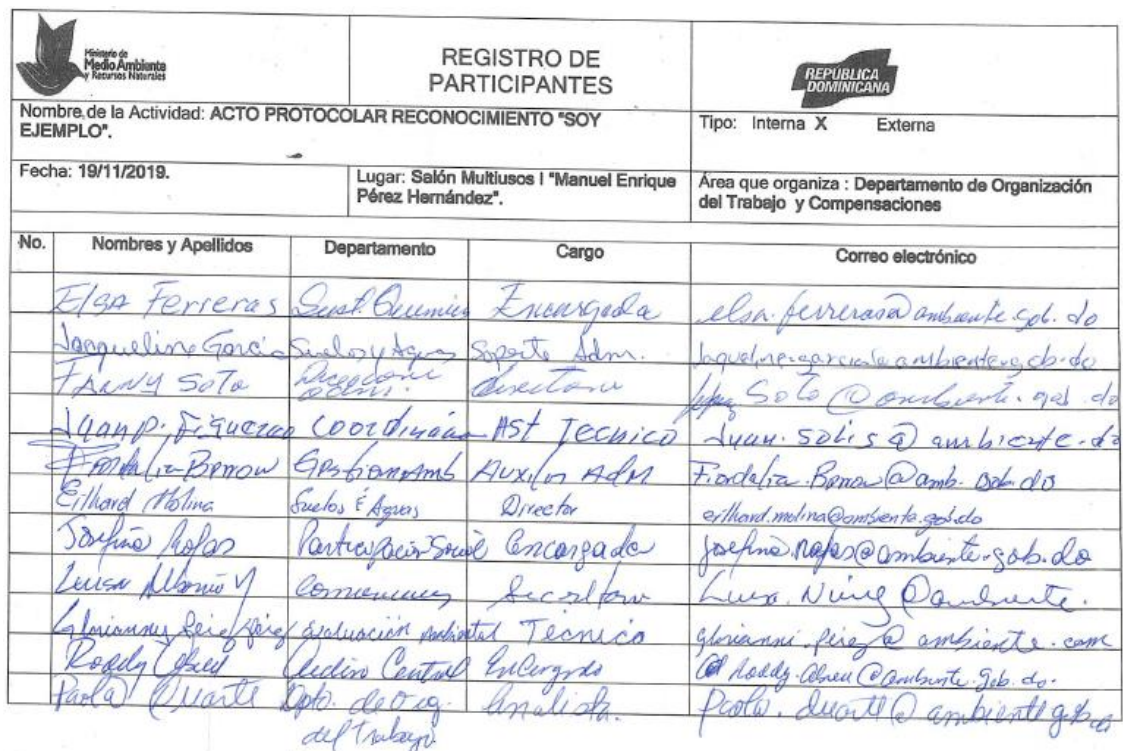 Ministerio de
Medio Ambiente
y Recursos Naturales
REGISTRO DE
PARTICIPANTES
REPUBLICA
DOMINICANA
Nombre de la Actividad: ACTO PROTOCOLAR RECONOCIMIENTO "SOY
EJEMPLO".
Tipo: Interna X Externa
Fecha: 19/11/2019.
Lugar: Salón Multiusos I "Manuel Enrique
Pérez Hernández".
Área que organiza : Departamento de Organización
del Trabajo y Compensaciones
No. Nombres y Apellidos Departamento Cargo Correo electrónico
Elsa Ferreras Sust. Quimica Encargada elsa.ferreras@ambiente.gob.do
Jaqueline Garcia Suelos y Aguas Soporte Adm. Jaqueline.garcia@ambiente.gob.do
FANNY SOTO Directora Soto@ambiente.gob.do
Juan P. Figuereo AST Tecnico Juan.Solis@ambiente.do
Auxiliar ADM
Eilhard Molina Suelos & Aguas Director eilhard.molina@ambiente.gob.do
Josefina Rojas Participación Social encargada josefina.rojas@ambiente.gob.do
Luisa
evaluación Ambiental Tecnico glorianni.perez@ambiente.com
Roddy Abreu Central Encargado Roddy.abreu@ambiente.gob.do.
Paola Duarte Dpto. de Org. Analista. Paola.duarte@ambiente.gob.do
del Trabajo